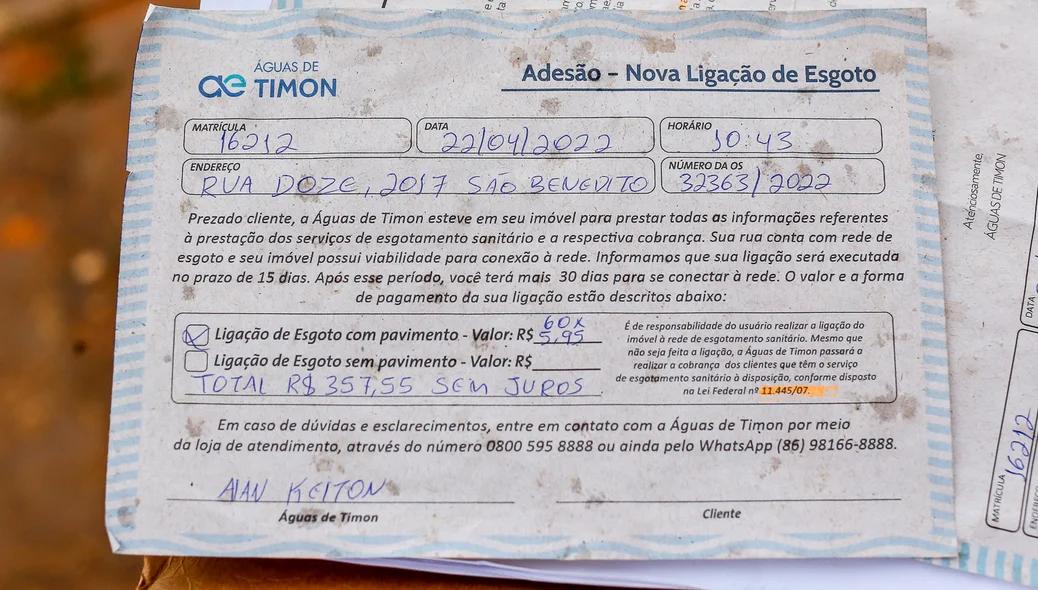 ÁGUAS DE
ae TIMON
Adesão – Nova Ligação de Esgoto
MATRÍCULA
16212
DATA
22/04/2022
HORÁRIO
10:43
ENDEREÇO
RUA DOZE, 2017 SÃO BENEDITO
NÚMERO DA OS
32363/2022
Prezado cliente, a Águas de Timon esteve em seu imóvel para prestar todas as informações referentes
à prestação dos serviços de esgotamento sanitário e a respectiva cobrança. Sua rua conta com rede de
esgoto e seu imóvel possui viabilidade para conexão à rede. Informamos que sua ligação será executada
no prazo de 15 dias. Após esse período, você terá mais 30 dias para se conectar à rede. O valor e a forma
de pagamento da sua ligação estão descritos abaixo:
60x
Ligação de Esgoto com pavimento - Valor: R$ 5,95
Ligação de Esgoto sem pavimento - Valor: R$
TOTAL R$ 357,55 SEM JUROS
É de responsabilidade do usuário realizar a ligação do
imóvel à rede de esgotamento sanitário. Mesmo que
não seja feita a ligação, a Águas de Timon passará a
realizar a cobrança dos clientes que têm o serviço
de esgotamento sanitário à disposição, conforme disposto
na Lei Federal nº 11.445/07.
Em caso de dúvidas e esclarecimentos, entre em contato com a Águas de Timon por meio
da loja de atendimento, através do número 0800 595 8888 ou ainda pelo WhatsApp (86) 98166-8888.
AlAN KEITON
Águas de Timon
Cliente
Atenciosamente,
ÁGUAS DE TIMON
DATA
MATRÍCULA
16212
ENDEREÇO